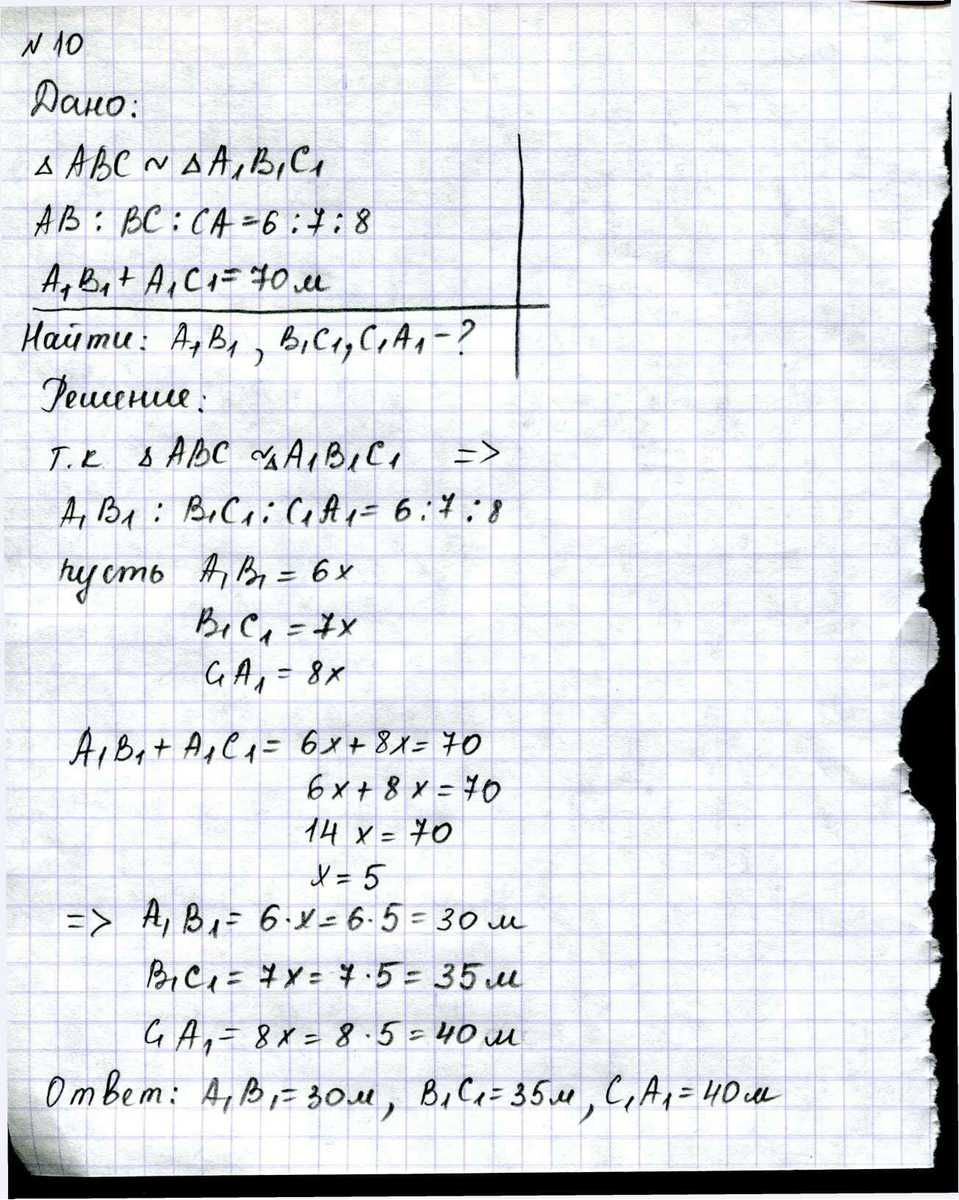 N 10
Дано:
△ ABC ~ △ A₁B₁C₁
AB : BC : CA = 6 : 7 : 8
A₁B₁ + A₁C₁ = 70 м
Найти: A₁B₁ , B₁C₁, C₁A₁ - ?
Решение:
т.к △ ABC ~ △ A₁B₁C₁ =>
A₁B₁ : B₁C₁ : C₁A₁ = 6 : 7 : 8
пусть A₁B₁ = 6x
B₁C₁ = 7x
C₁A₁ = 8x
A₁B₁ + A₁C₁ = 6x + 8x = 70
6x + 8x = 70
14 x = 70
x = 5
=> A₁B₁ = 6·x = 6·5 = 30 м
B₁C₁ = 7x = 7·5 = 35 м
C₁A₁ = 8x = 8·5 = 40 м
Ответ: A₁B₁ = 30м, B₁C₁ = 35м, C₁A₁ = 40м